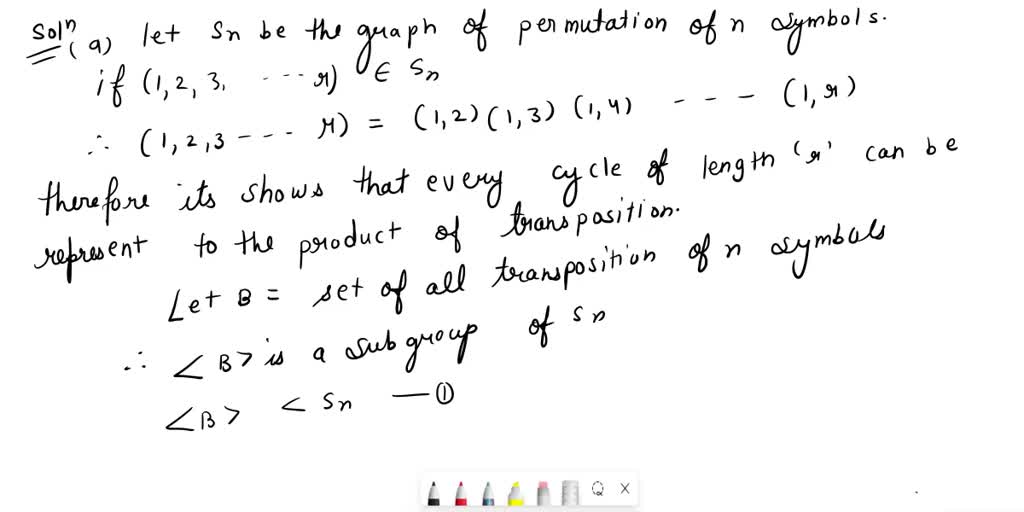 Solⁿ (a) let Sn be the graph of permutation of n symbols.
if (1, 2, 3, ---- r) ∈ Sn
∴ (1, 2, 3 ---- r) = (1, 2) (1, 3) (1, 4) --- (1, r)
therefore its shows that every cycle of length 'r' can be
represent to the product of transposition.
Let B = set of all transposition of n symbals
∴ <B> is a subgroup of Sn
<B> < Sn — ①